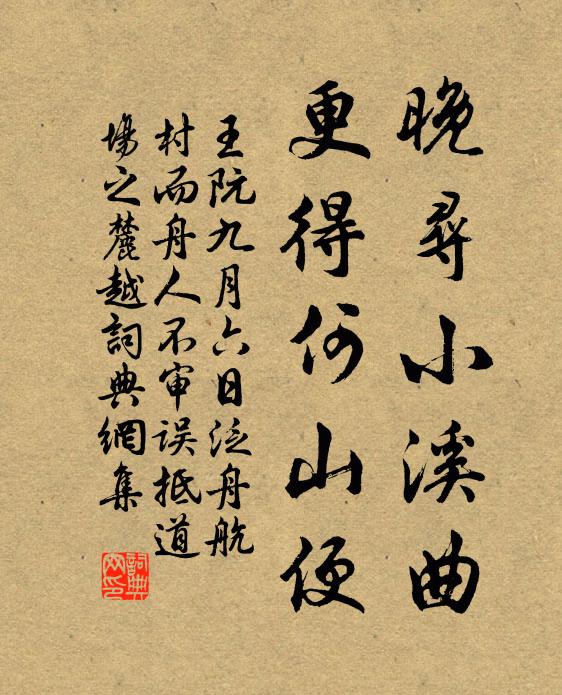 晚尋小溪曲
更得何山便
王阮九月六日泛舟航
村而舟人不审误抵道
場之麓越詞典網集
詞典
网印